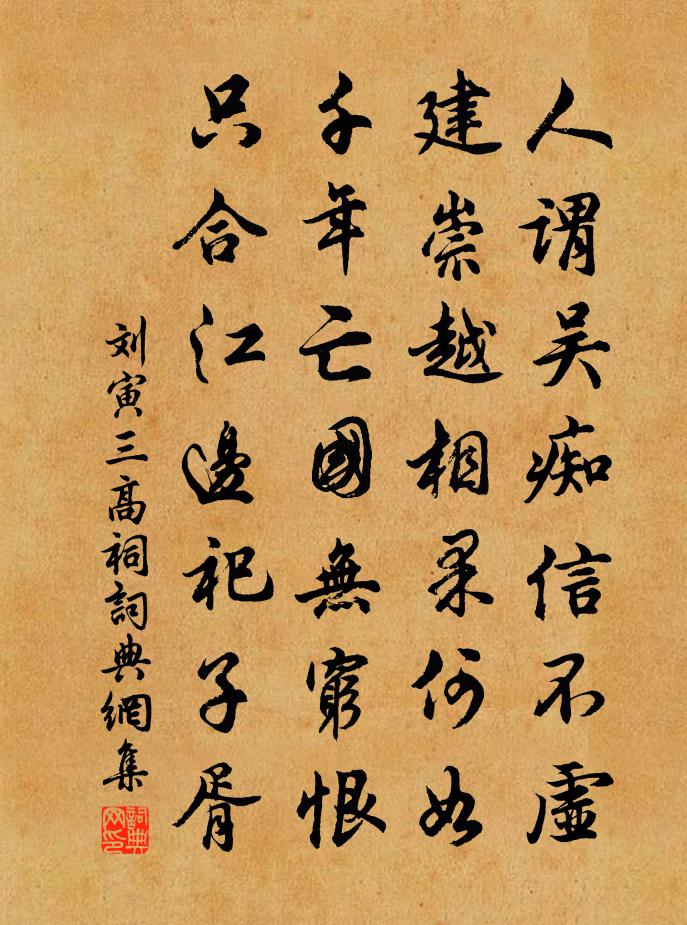 人谓吴痴信不虚
建崇越相果何如
千年亡國無窮恨
只合江邊祀子胥
刘寅三高祠詞典網集
詞典网印